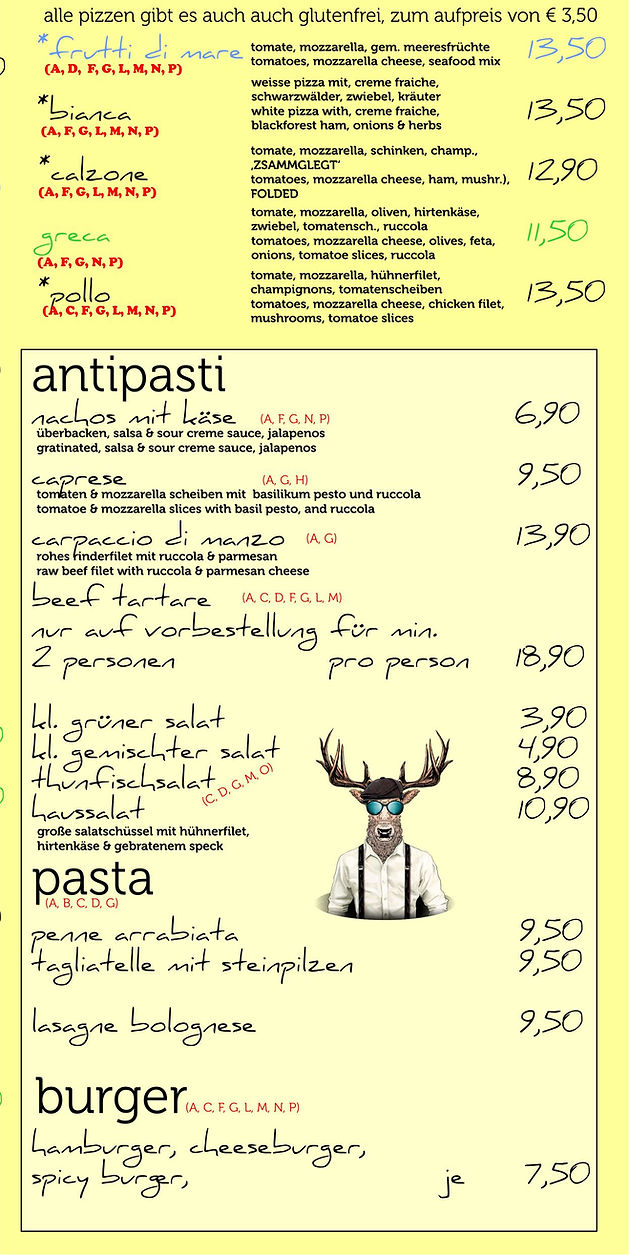 alle pizzen gibt es auch auch glutenfrei, zum aufpreis von € 3,50
*frutti di mare tomate, mozzarella, gem. meeresfrüchte 13,50
(A, D, F, G, L, M, N, P) tomatoes, mozzarella cheese, seafood mix
weisse pizza mit, creme fraiche,
schwarzwälder, zwiebel, kräuter
*bianca white pizza with, creme fraiche, 13,50
(A, F, G, L, M, N, P) blackforest ham, onions & herbs
tomate, mozzarella, schinken, champ.,
*calzone ‚ZSAMMGLEGT‘ 12,90
(A, F, G, L, M, N, P) tomatoes, mozzarella cheese, ham, mushr.),
FOLDED
tomate, mozzarella, oliven, hirtenkäse,
zwiebel, tomatensch., ruccola
greca tomatoes, mozzarella cheese, olives, feta, 11,50
(A, F, G, N, P) onions, tomatoe slices, ruccola
tomate, mozzarella, hühnerfilet,
*pollo champignons, tomatenscheiben 13,50
(A, C, F, G, L, M, N, P) tomatoes, mozzarella cheese, chicken filet,
mushrooms, tomatoe slices
antipasti
nachos mit käse (A, F, G, N, P) 6,90
überbacken, salsa & sour creme sauce, jalapenos
gratinated, salsa & sour creme sauce, jalapenos
caprese (A, G, H) 9,50
tomaten & mozzarella scheiben mit basilikum pesto und ruccola
tomatoe & mozzarella slices with basil pesto, and ruccola
carpaccio di manzo (A, G) 13,90
rohes rinderfilet mit ruccola & parmesan
raw beef filet with ruccola & parmesan cheese
beef tartare (A, C, D, F, G, L, M)
nur auf vorbestellung für min.
2 personen pro person 18,90
kl. grüner salat 3,90
kl. gemischter salat 4,90
thunfischsalat (C, D, G, M, O) 8,90
haussalat 10,90
große salatschüssel mit hühnerfilet,
hirtenkäse & gebratenem speck
pasta
(A, B, C, D, G)
penne arrabiata 9,50
tagliatelle mit steinpilzen 9,50
lasagne bolognese 9,50
burger (A, C, F, G, L, M, N, P)
hamburger, cheeseburger,
spicy burger, je 7,50